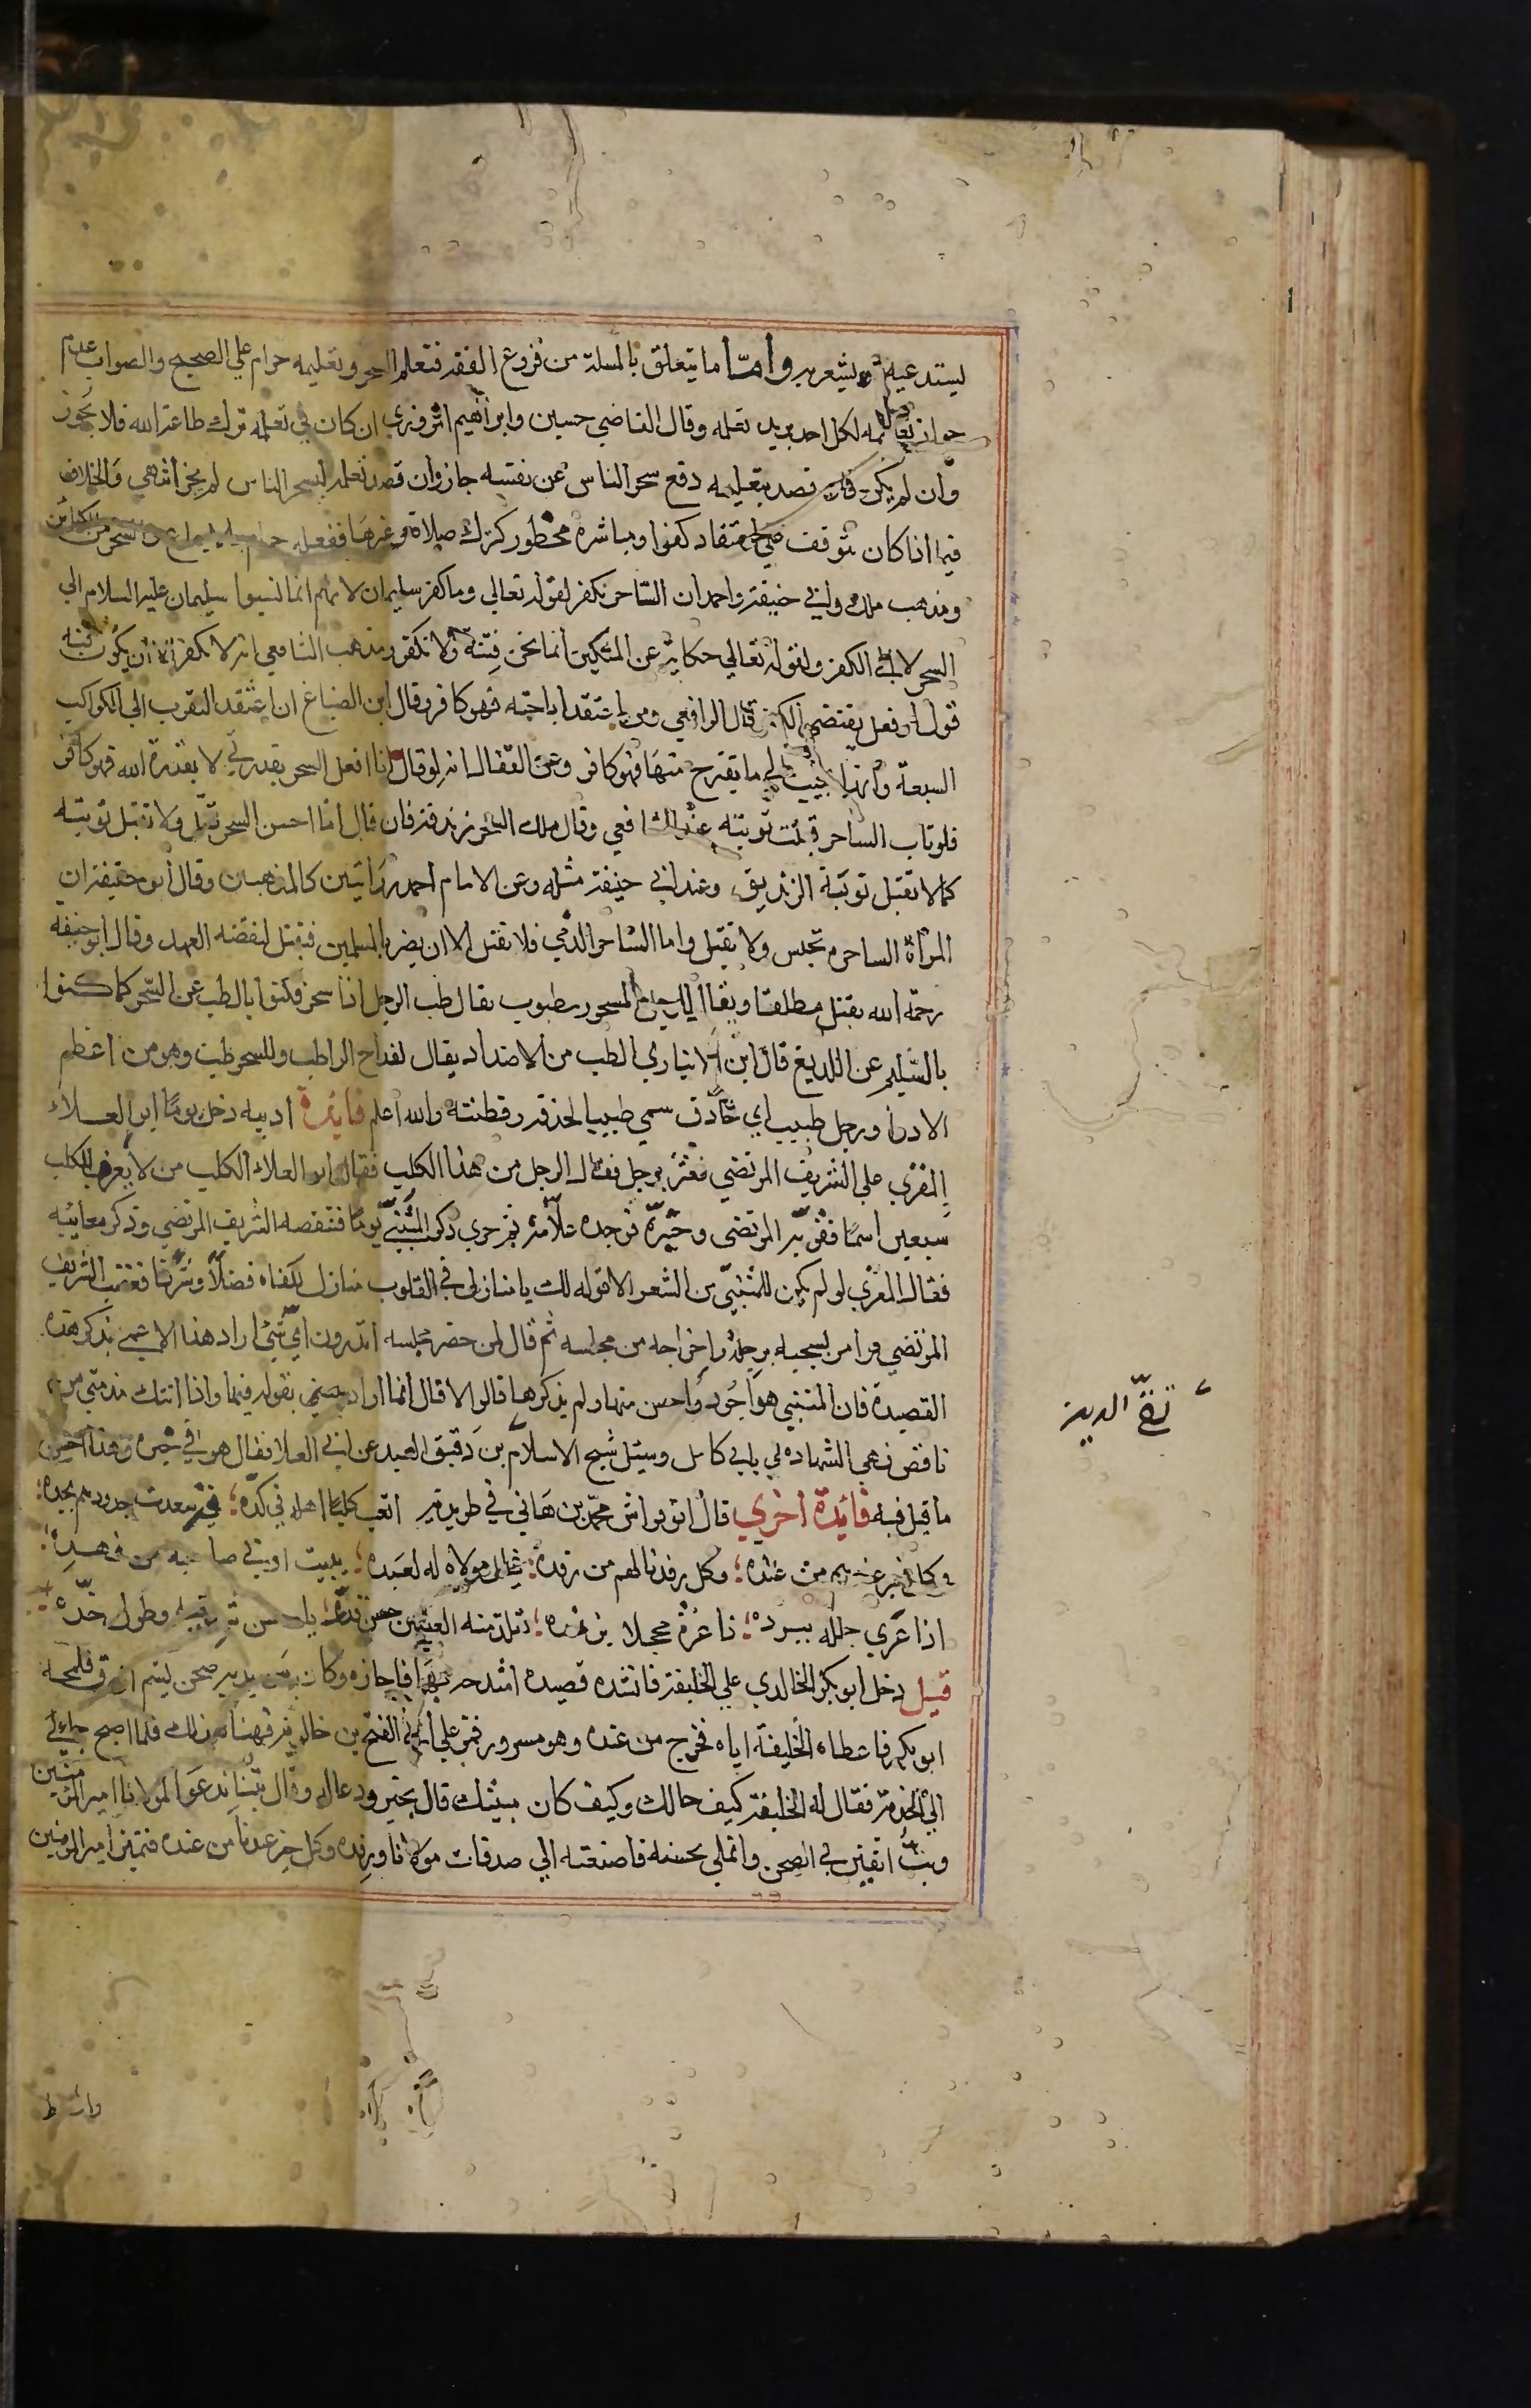 يستدعيه ويشعر به وامّا ما يتعلق بالمسلة من فروع الفقه فتعلم السحر وتعليمه حرام علي الصحيح والصواب عدم
جواز تعلمه لكل احد يريد تعلمه وقال القاضي حسين وابراهيم المروزي ان كان في تعلمه ترك طاعة الله فلا يجوز
وان لم يكن قصد بتعليمه دفع سحر الناس عن نفسه جاز وان قصد تعلمه ليسحر الناس لم يجز انتهي والخلاف
فيما اذا كان يتوقف علي اعتقاد كفر او مباشرة محظور كترك صلاة وغيرها ففعله حرام والسحر من الكبائر
ومذهب ملك وابي حنيفة واحمد ان الساحر يكفر لقوله تعالي وما كفر سليمان لانهم انما نسبوا سليمان عليه السلام الي
السحر لا الي الكفر ولقوله تعالي حكاية عن الملكين انما نحن فتنة فلا تكفر ومذهب الشافعي انه لا يكفر الا ان يكون منه
قول او فعل يقتضي الكفر قال الرافعي ومن اعتقد اباحته فهو كافر وقال ابن الصباغ ان اعتقد التقرب الي الكواكب
السبعة وانها تجيب الي ما يقترح منها فهو كافر وعن القفال انه لو قال انا افعل السحر بقدرتي لا بقدرة الله فهو كافر
فلو تاب الساحر قبلت توبته عند الشافعي وقال ملك السحر زندقة فان قال انا احسن السحر قتل ولا تقبل توبته
كما لا تقبل توبة الزنديق وعند ابي حنيفة مثله وعن الامام احمد روايتين كالمذهبين وقال ابو حنيفة ان
المرأة الساحرة تحبس ولا تقتل واما الساحر الذمي فلا يقتل الا ان يضر بالمسلمين فيقتل لنقضه العهد وقال ابو حنيفة
رحمة الله يقتل مطلقا ويقال للرجل المسحور مطبوب يقال طب الرجل اذا سحر فكنوا بالطب عن السحر كما كنوا
بالسليم عن اللديغ قال ابن الانباري الطب من الاضداد يقال لعلاج الدا طب وللسحر طب وهو من اعظم
الادوا ورجل طبيب اي حاذق سمي طبيبا لحذقه وفطنته والله اعلم فايدة ادبيه دخل يوما ابو العلاء
المعري علي الشريف المرتضي فعثر برجل فقال الرجل من هذا الكلب فقال ابو العلاء الكلب من لا يعرف للكلب
سبعين اسما فقربه المرتضي وخبره فوجده علامة ثم جري ذكر المتنبي يوما فتنقصه الشريف المرتضي وذكر معايبه
فقال المعري لو لم يكن للمتنبي من الشعر الا قوله لك يا منازل في القلوب منازل لكفاه فضلا وشرفا فغضب الشريف
المرتضي وامر بسحبه برجله واخراجه من مجلسه ثم قال لمن حضر مجلسه اتدرون اي شيء اراد هذا الاعمي بذكر هذه
القصيدة فان للمتنبي هو اجود واحسن منها ولم يذكرها قالوا لا قال انما اراد بقوله فيها واذا اتتك مذمتي من
ناقص فهي الشهاده لي باني كامل وسئل شيخ الاسلام بن دقيق العيد عن ابي العلا فقال هو في حيرة وهذا احسن
ما قيل فيه فايدة اخري قال ابو نواس محمد بن هاني في طرديته اتعب كلبا اهله في كدّه قد سعدت جدودهم بجده
وكل خير عندهم من عنده وكل رفد نالهم من رفده يظل مولاه له كعبده يبيت ادني صاحب من مهده
اذا عري جلله ببرده ذا غرة محجلا بزنده تلذ منه العين حسن قده يا حسن شدقيه وطول خده
قيل دخل ابو بكر الخالدي علي الخليفة فانشده قصيده امتدحه بها فاجازه وكان بين يديه صحن يشم ازرق فلمحه
ابو بكر فاعطاه الخليفة اياه فخرج من عنده وهو مسرور فمر علي ابي الفتح بن خالويه فهناه بذلك فلما اصبح جاء الي
الي الخدمة فقال له الخليفة كيف حالك وكيف كان مبيتك قال بخير ودعا له وقال بتنا ندعوا لمولانا امير المؤمنين
وبتُّ اتفنن في الصحن واتملي بحسنه فاضفته الي صدقات مولانا ورفده وكل خير عندنا من عنده فتميز امير المؤمنين
تقيّ الدين